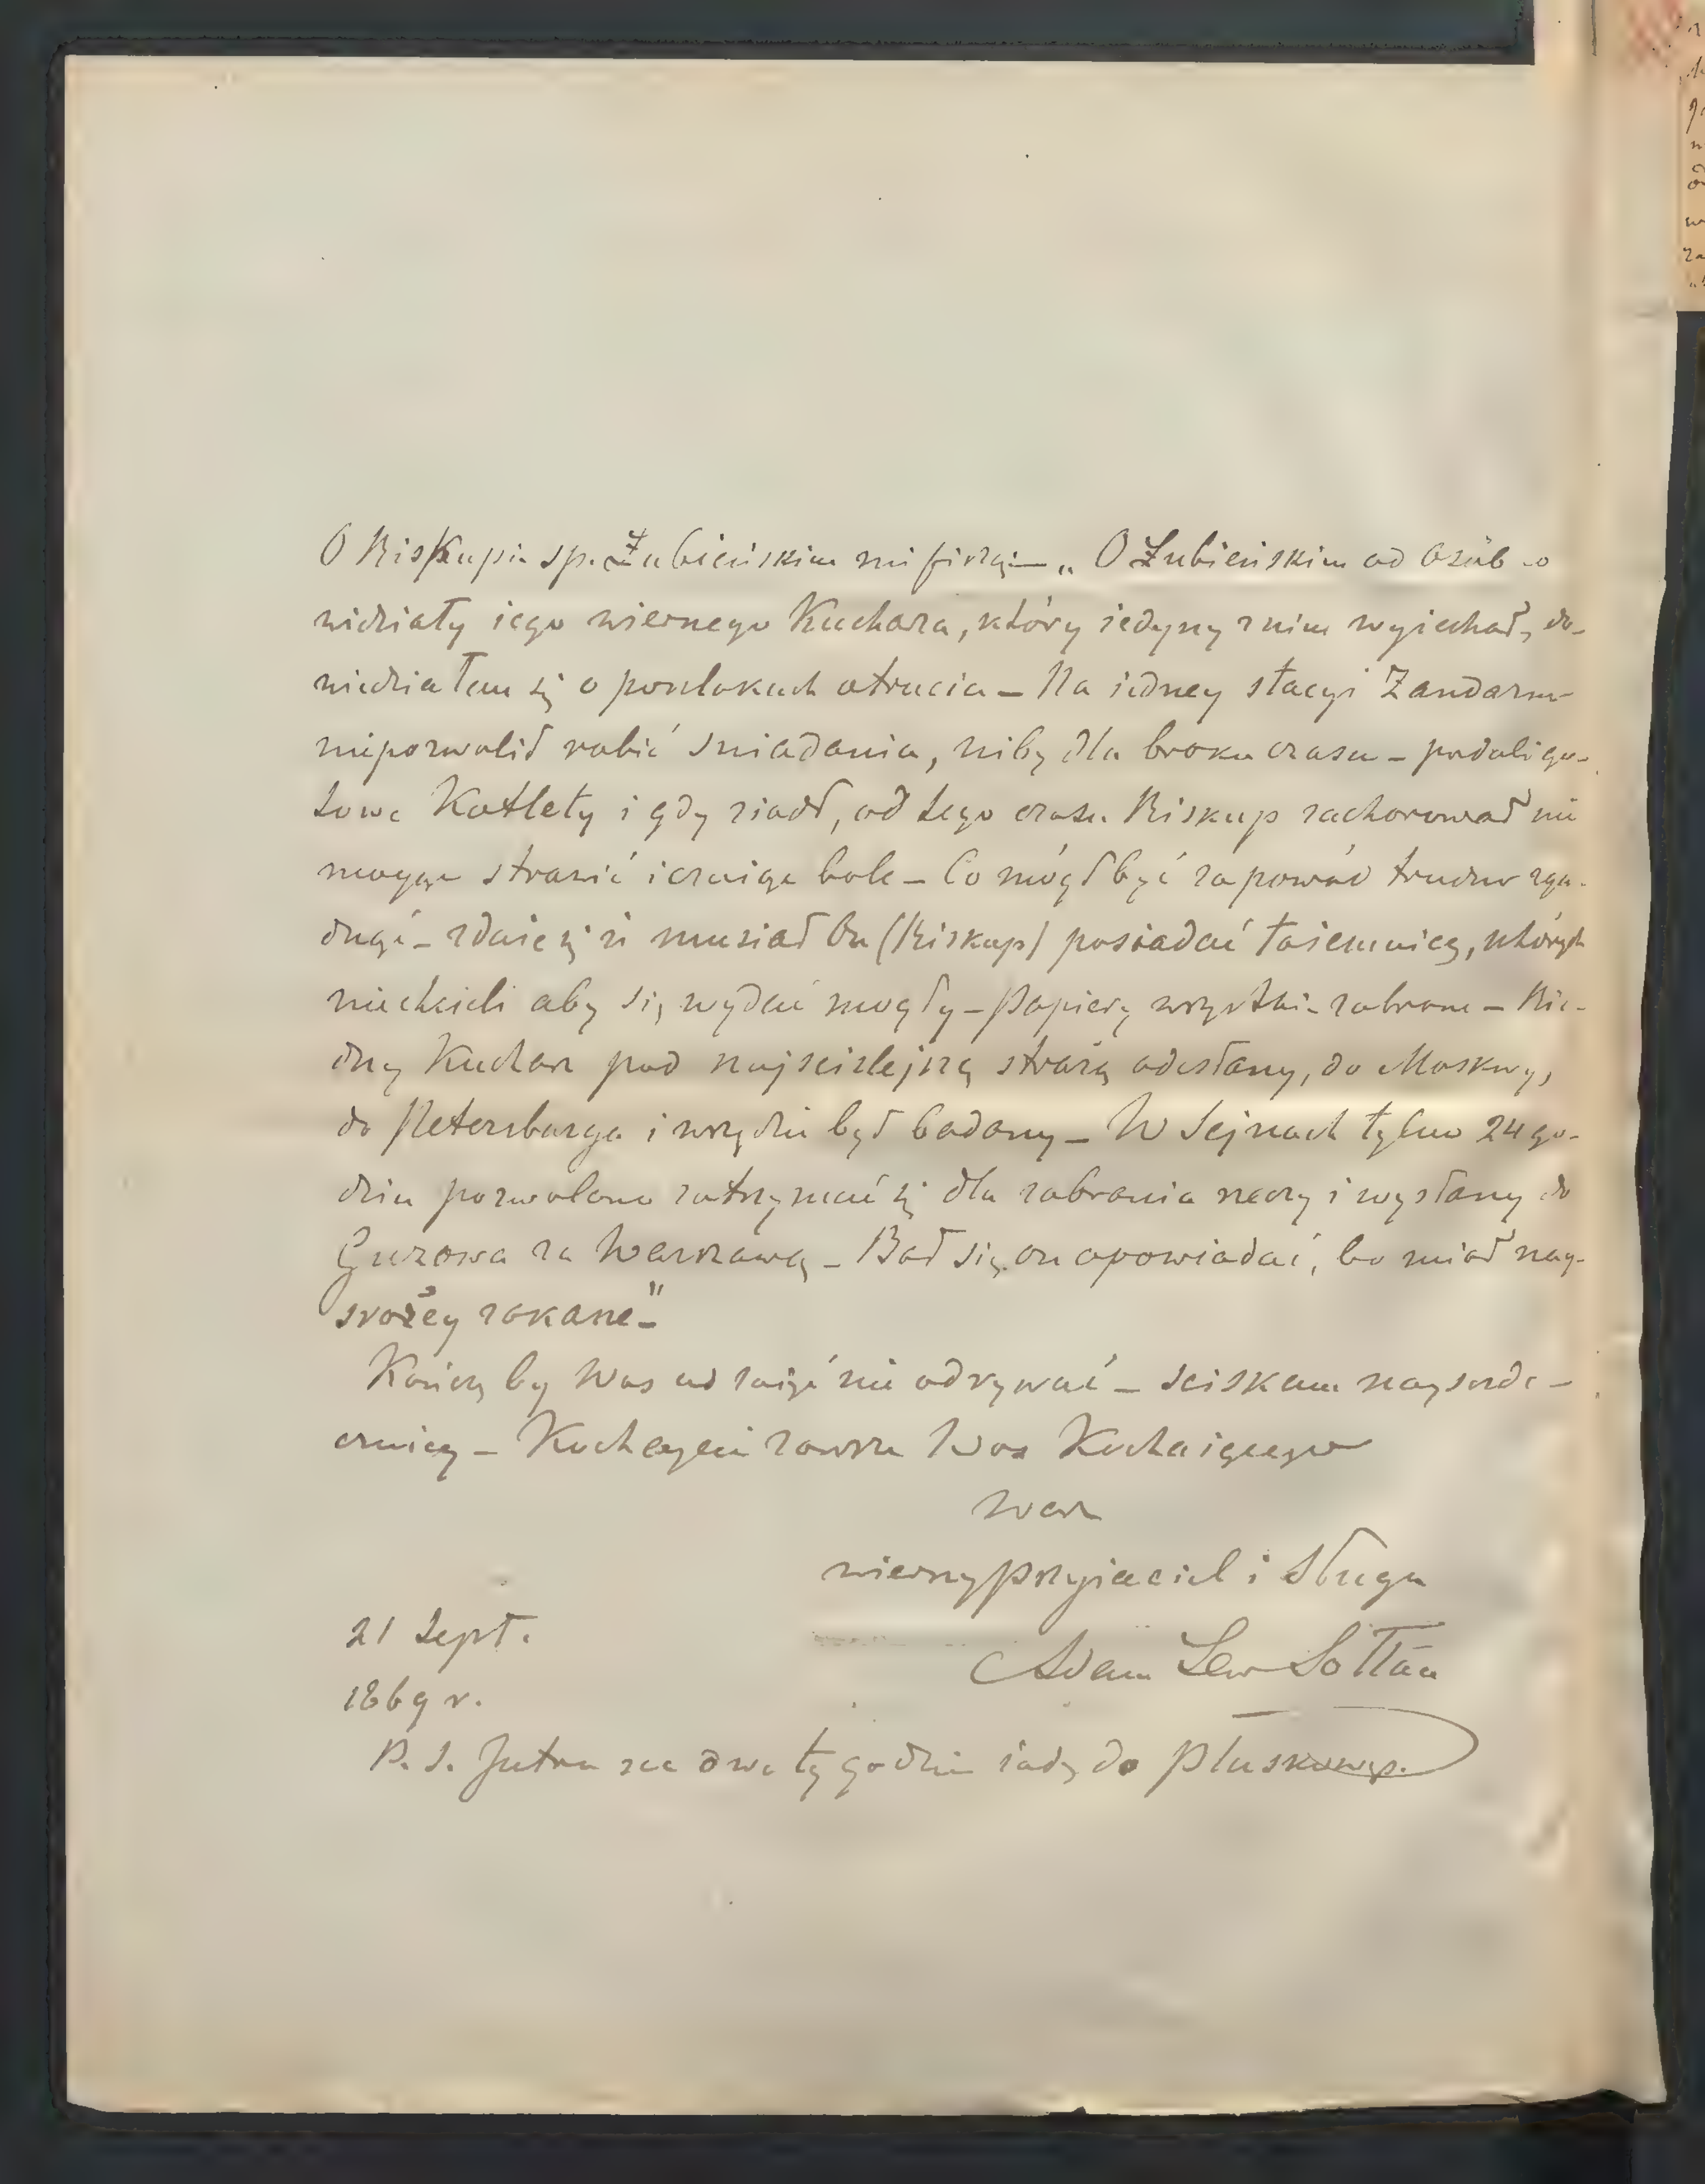 O Biskupie śp. Łubieńskim mi piszą — „O Łubieńskim od osób co
widziały iego wiernego Kucharza, który iedyny z nim wyiechał, do-
wiedziałem się o poszlakach otrucia — Na iedney stacyi Żandarm
niepozwolił robić sniadania, niby dla braku czasu — podali go-
towe Kotlety i gdy ziadł, od tego czasu Biskup zachorował nie
mogąc strawić i czuiąc bole — Co mógł być za powód trudno zga-
dnąć — zdaie się że musiał On (Biskup) posiadać taiemnice, których
niechcieli aby się wydać mogły — Papiery wszystkie zabrane — Bie-
dny Kucharz pod najscislejszą strażą odesłany, do Moskwy,
do Petersburga i wszędzie był badany — W Sejnach tylko 24 go-
dzin pozwolono zatrzymać się dla zabrania rzeczy i wysłany do
Guzowa za Warszawą — Bał się on opowiadać, bo miał nay-
srożey zakazane" —
Kończę by Was od zaięć nie odrywać — sciskam nayserde-
czniey — Kochaycie zawsze Was Kochaiącego
Wasz
wierny przyiaciel i Sługa
Adam Lew Sołtan
21 Sept.
1869 r.
P. S. Jutro na dwa tygodnie iadę do